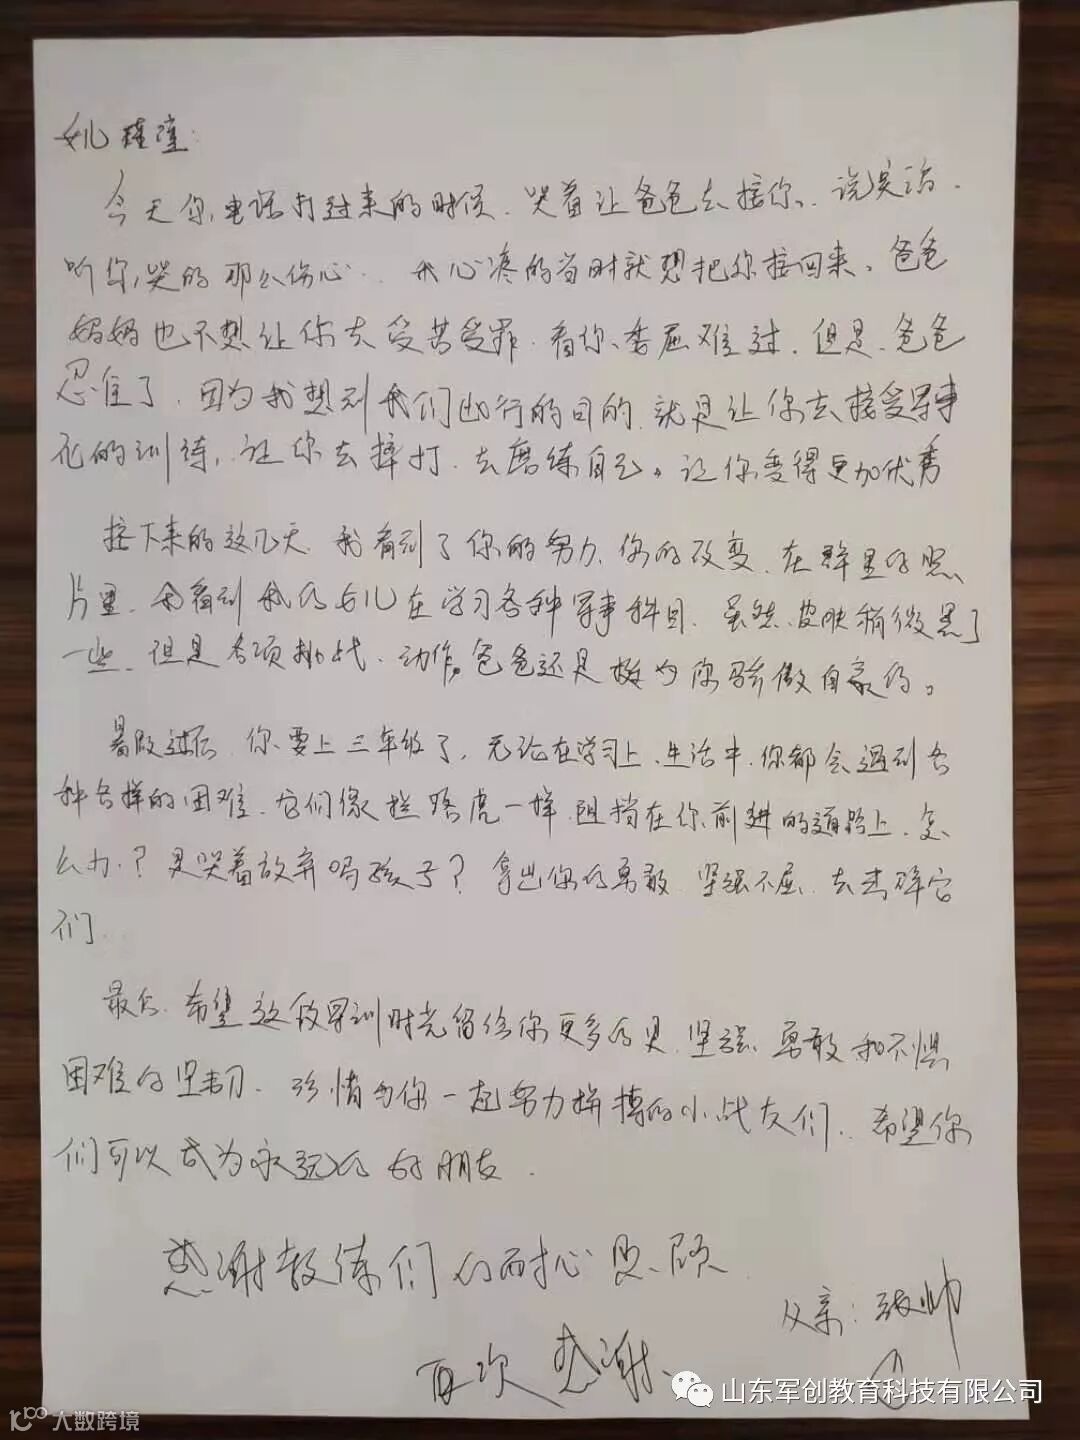 女儿瑾瑄:
今天你电话打过来的时候,哭着让爸爸去接你。说实话,
听你哭的那么伤心,我心疼的当时就想把你接回来。爸爸
妈妈也不想让你去受苦受罪,看你委屈难过,但是,爸爸
忍住了,因为我想到我们此行的目的,就是让你去接受军事
化的训练,让你去摔打,去磨练自己。让你变得更加优秀
接下来的这几天,我看到了你的努力,你的改变,在群里的照
片里,我看到我的女儿在学习各种军事科目,虽然皮肤稍微黑了
一些,但是专项挑战,动作,爸爸还是挺为你骄傲自豪的。
暑假过后,你要上三年级了,无论在学习上,生活中,你都会遇到各
种各样的困难,它们像拦路虎一样,阻挡在你前进的道路上,怎
么办?是哭着放弃吗孩子?拿出你的勇敢,坚强不屈,去击碎它
们。
最后,希望这段军训时光留给你更多的是,坚强,勇敢和不惧
困难的坚韧,珍惜和你一起努力拼搏的小战友们,希望你
们可以成为永远的好朋友。
感谢教练们的耐心照顾
父亲:张帅
再次感谢、
山东军创教育科技有限公司
大数跨境